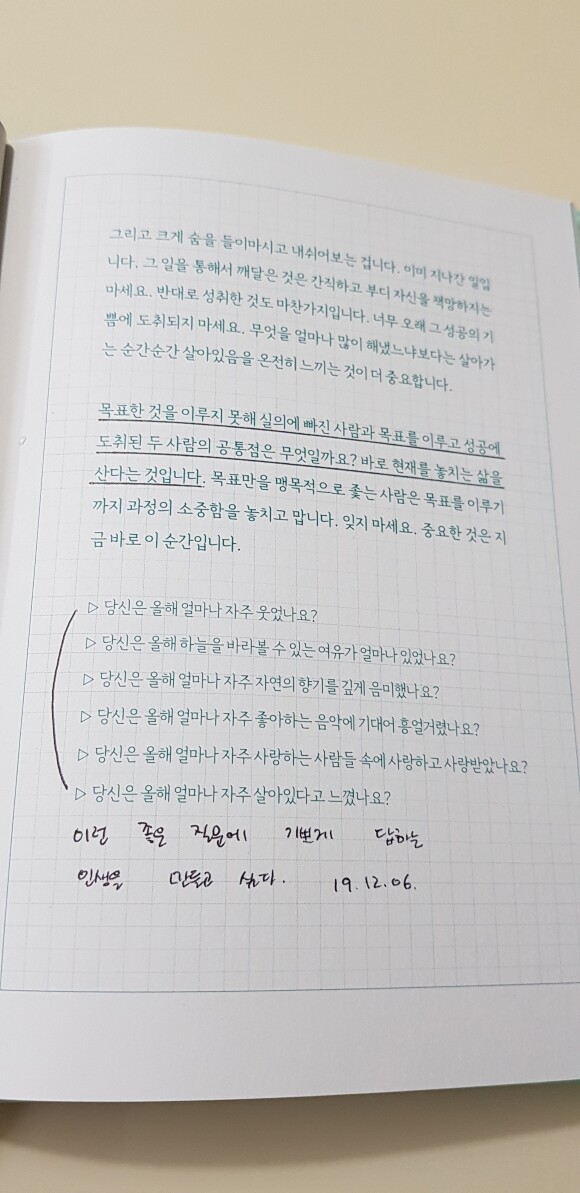 그리고 크게 숨을 들이마시고 내쉬어보는 겁니다. 이미 지나간 일입
니다. 그 일을 통해서 깨달은 것은 간직하고 부디 자신을 책망하지는
마세요. 반대로 성취한 것도 마찬가지입니다. 너무 오래 그 성공의 기
쁨에 도취되지 마세요. 무엇을 얼마나 많이 해냈느냐보다는 살아가
는 순간순간 살아있음을 온전히 느끼는 것이 더 중요합니다.
목표한 것을 이루지 못해 실의에 빠진 사람과 목표를 이루고 성공에
도취된 두 사람의 공통점은 무엇일까요? 바로 현재를 놓치는 삶을
산다는 것입니다. 목표만을 맹목적으로 좇는 사람은 목표를 이루기
까지 과정의 소중함을 놓치고 맙니다. 잊지 마세요. 중요한 것은 지
금 바로 이 순간입니다.
▷ 당신은 올해 얼마나 자주 웃었나요?
▷ 당신은 올해 하늘을 바라볼 수 있는 여유가 얼마나 있었나요?
▷ 당신은 올해 얼마나 자주 자연의 향기를 깊게 음미했나요?
▷ 당신은 올해 얼마나 자주 좋아하는 음악에 기대어 흥얼거렸나요?
▷ 당신은 올해 얼마나 자주 사랑하는 사람들 속에 사랑하고 사랑받았나요?
▷ 당신은 올해 얼마나 자주 살아있다고 느꼈나요?
이런 좋은 질문에 기쁘게 답하는
인생을 만들고 싶다. 19.12.06.